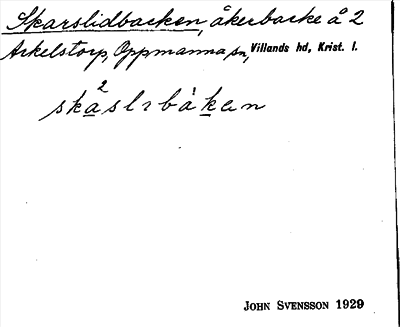 Skarslidbacken, åkerbacke å 2
Arkelstorp, Oppmanna sn, Villands hd, Krist. l.
2
skaslıbàken
JOHN SVENSSON 1929